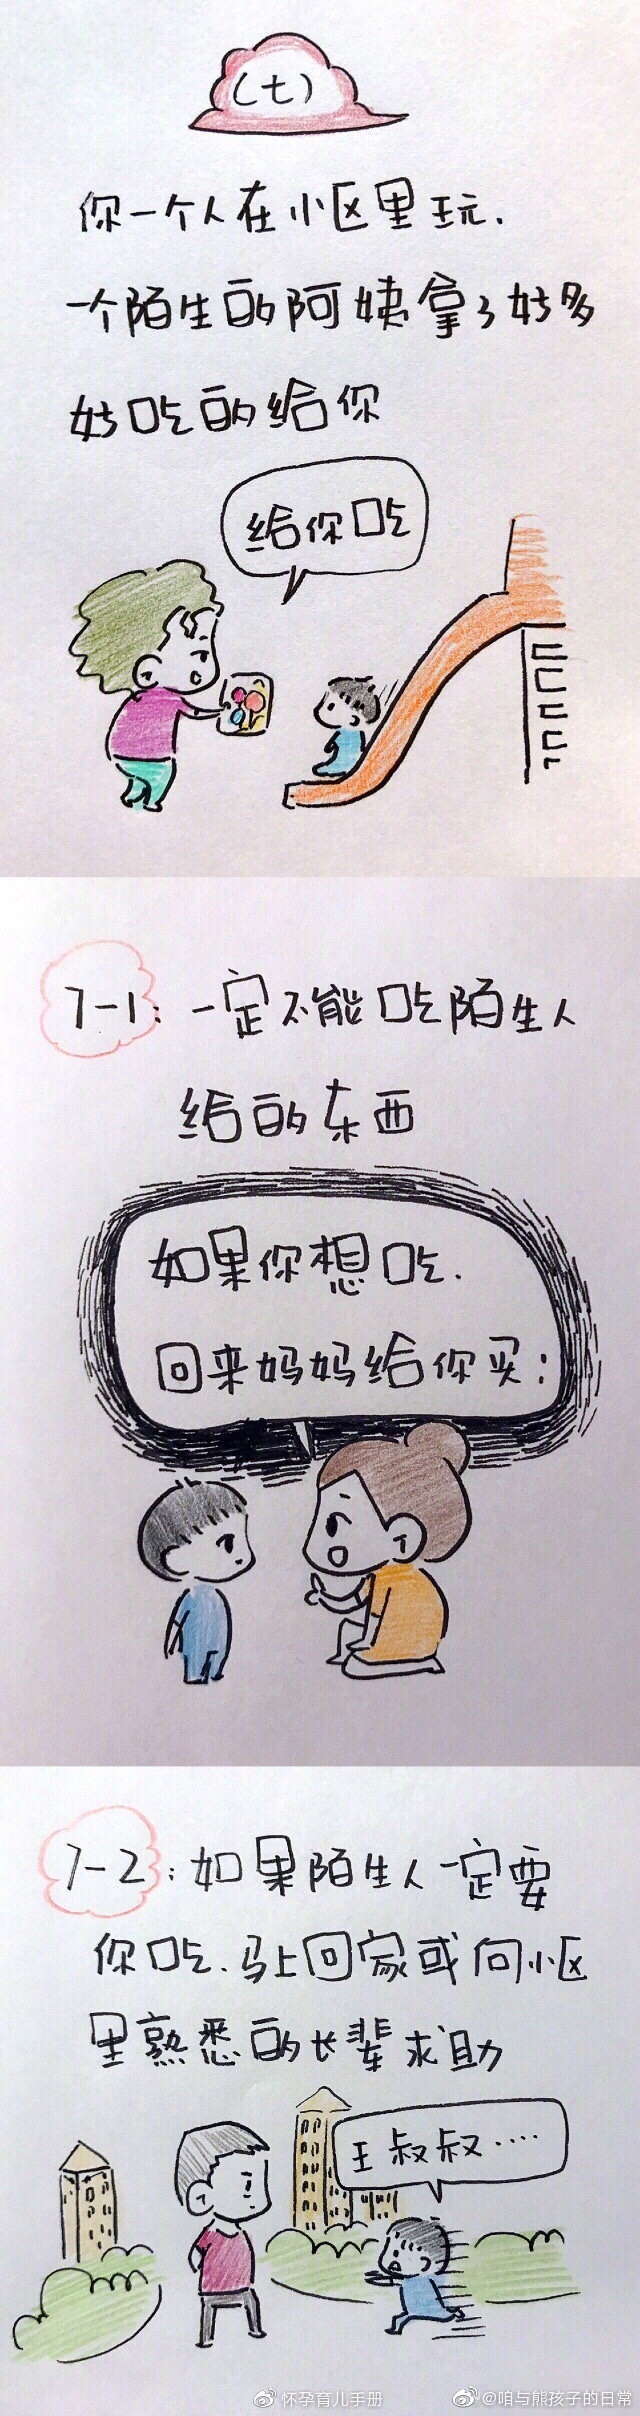 (七)
你一个人在小区里玩.
一个陌生的阿姨拿了好多
好吃的给你
给你吃
7-1:一定不能吃陌生人
给的东西
如果你想吃.
回来妈妈给你买;
7-2:如果陌生人一定要
你吃.马上回家或向小区
里熟悉的长辈求助
王叔叔....
怀孕育儿手册
@咱与熊孩子的日常